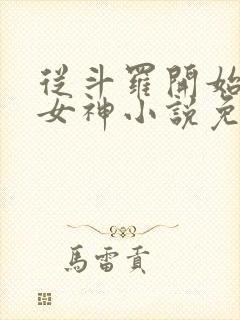 從斗羅開始
女神小說免
馬雷貢